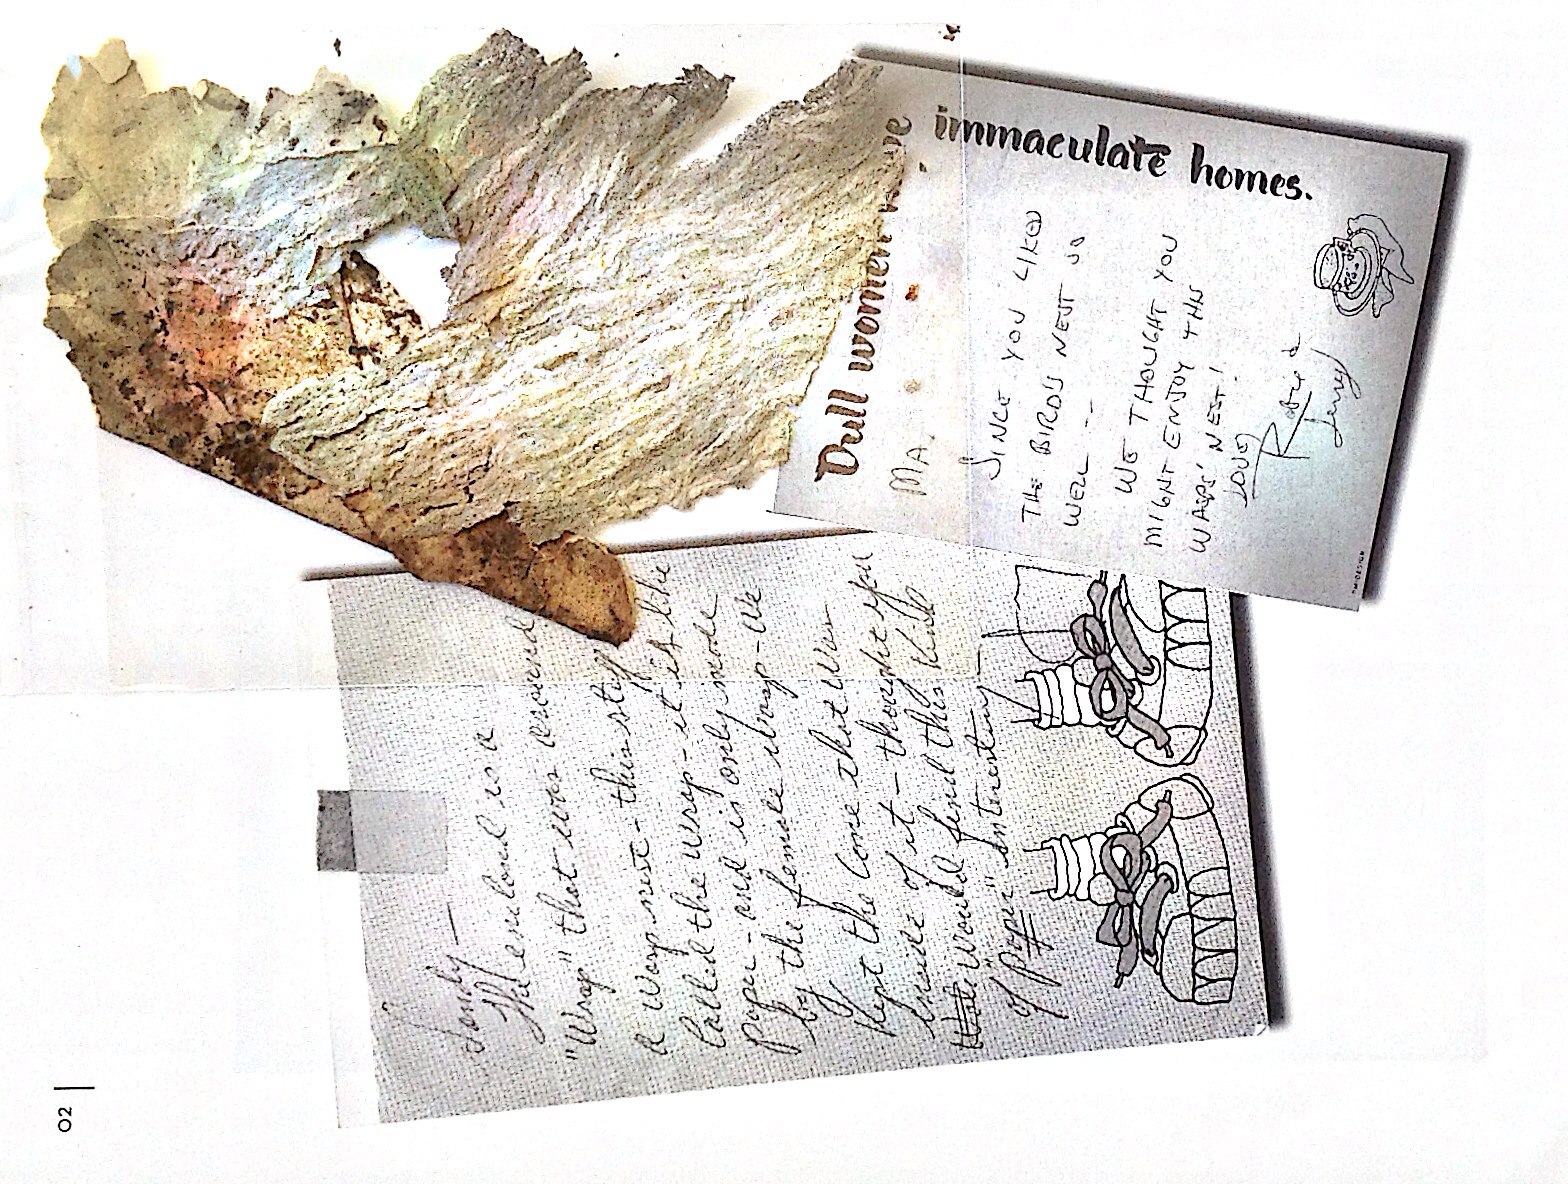 Dull women have
immaculate homes.
MA.
SINCE YOU LIKED
THE BIRDS NEST SO
WELL --
WE THOUGHT YOU
MIGHT ENJOY THIS
WASPS' NEST!
LOVE,
&
Jenny
Sandy —
The enclosed is a
"Wrap" that was around
a wasp nest - this stuff
called the wrap - it is like
paper - and is only made
by the female wasp - We
kept the cone that was
inside of it - thought you
would find this kind
of "paper" interesting
02